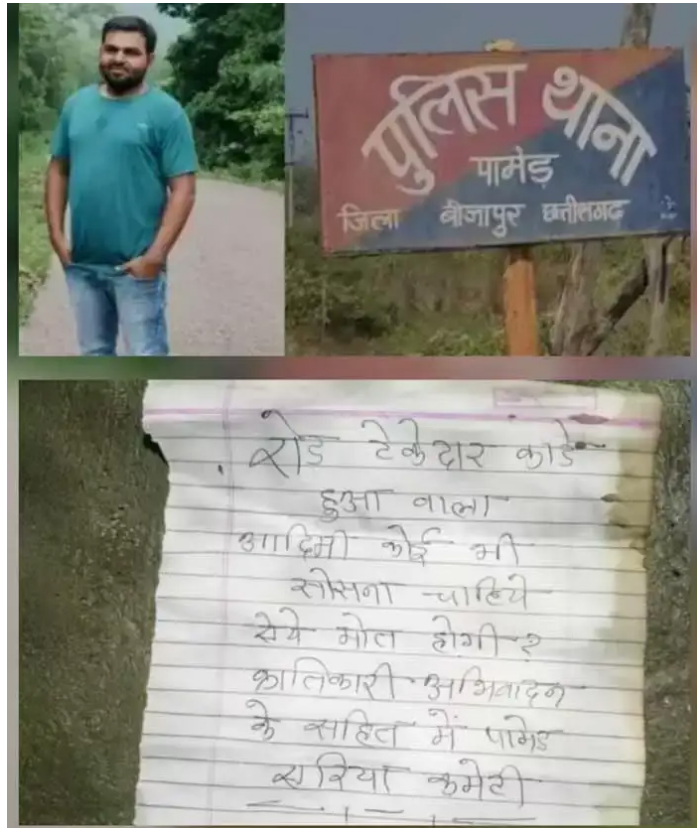 पुलिस थाना
पामेड़
जिला बीजापुर छत्तीसगढ़
रोड ठेकेदार काडे
हुआ वाला
आदिमी कोई भी
सोसना चाहिये
सेये मोत होगी ?
क्रातिकारी अभिवादन
के साहित में पामेड
एरिया कमेटी